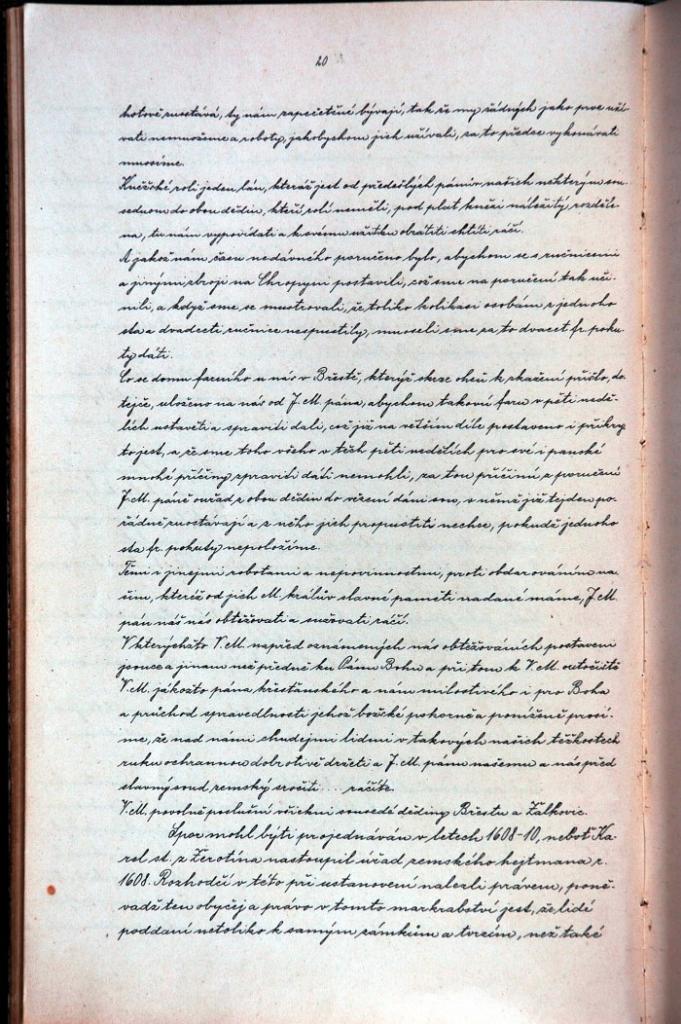 20
hotově zuostává, ty nám zapečetěné bývají, tak že my řádných jako prve uží-
vati nemuožeme a roboty, jakobychom jich užívali, za to předce vykonávati
mnusíme.
Kněžské rolí jeden lán, kteráž jest od předešlých pánův našich některým sou-
seduom do obou dědin, kteří rolí neměli, pod plat knězi náležitý rozděle-
na, tu nám vypovídati a k svému užitku obrátiti chtíti ráčí.
A jakož nám času nedávného poručeno bylo, abychom se s ručnicemi
a jinými zbroji na Chropyni postavili, což sme na poručení tak uči-
nili, a když sme se mustrovali, že toliko kolikasi osobám z jednoho
sta a dvadceti ručnice nespustily, museli sme za to dvacet fr. poku-
ty dáti.
Co se domu farního u nás v Břestě, kterýž skrze oheň k zkažení přišlo, do-
tejče, uloženo na nás od J. M. pána, abychom takovú faru v pěti nedě-
lích ustavěti a spraviti dali, což již na větším díle postaveno i přikry-
to jest, a že sme toho všeho v těch pěti nedělích pro své i panské
mnohé příčiny spraviti dáti nemohli, za tou příčinú z poručení
J. M. páně ouřad z obou dědin do vězení dáni sou, v němž již tejden po-
řádně zuostávají a z něho jich propustiti nechce, pokudž jednoho
sta fr. pokuty nepoložíme.
Těmi i jinejmi robotami a nepovinnostmi, proti obdarováním na-
šim, kteréž od jich M. králův slavné paměti nadané máme, J. M.
pan náš nás obtěžovati a sužovati ráčí.
V kterýchžto V. M. napřed oznámených nás obtěžováních postaveni
jsouce a jinam než předně ku Pánu Bohu a při tom k V. M. outočiště
V. M. jakožto pána křesťanského a nám milostivého i pro Boha
a průchod spravedlnosti jehož božské pokorně a poníženě prosí-
me, že nad námi chudejmi lidmi v takových našich těžkostech
ruku ochrannou dobrotivě držeti a J. M. pánu našemu a nás před
slavný soud zemský sročiti .... ráčíte.
V. M. povolně poslušní všickni sousedé dědiny Břestu a Žalkovic.
Spor mohl býti projednáván v letech 1608-10, neboť Ka-
rel st. z Žerotína nastoupil úřad zemského hejtmana r.
1608. Rozhodčí v této při ustanovení nalezli právem, poně-
vadž ten obyčej a právo v tomto markrabství jest, že lidé
poddaní netoliko k samým zámkům a tvrzím, než také